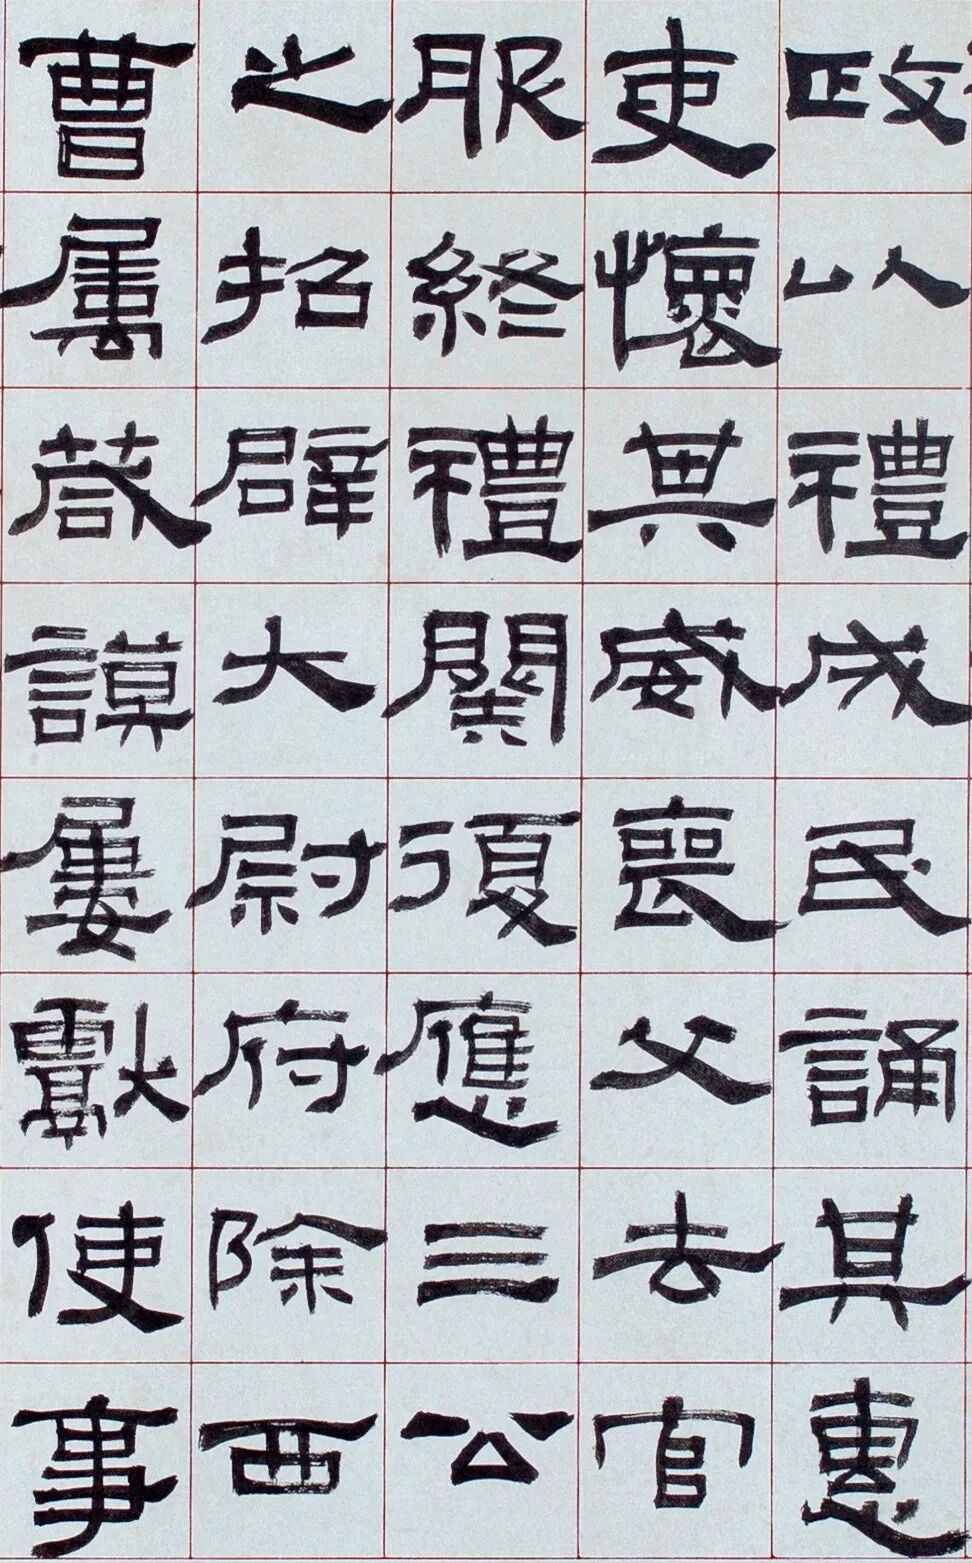 政以禮成民誦其惠
吏懷其威喪父去官
服終禮闋復應三公
之招辟大尉府除西
曹属葴謨屢獻使事